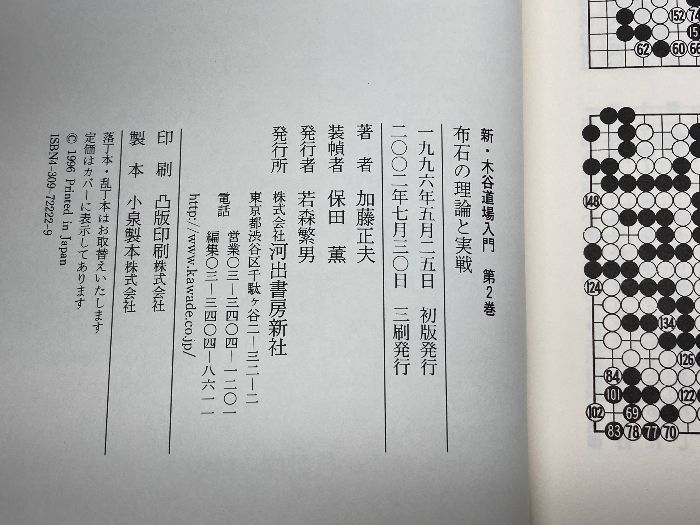 新・木谷道場入門　第2巻
布石の理論と実戦
一九九六年五月二五日　初版発行
二〇〇二年七月三〇日　三刷発行
著　者　加藤正夫
装幀者　保田　薫
発行者　若森繁男
発行所　株式会社河出書房新社
東京都渋谷区千駄ヶ谷二―三二―二
電話　営業〇三―三四〇四―一二〇一
編集〇三―三四〇四―八六一一
http://www.kawade.co.jp/
印　刷　凸版印刷株式会社
製　本　小泉製本株式会社
落丁本・乱丁本はお取替えいたします
定価はカバーに表示してあります
© 1996 Printed in Japan
ISBN4-309-72222-9
152 74
62 60 66
148
124
134
126
84
101 122
102 69
83 78 77 70